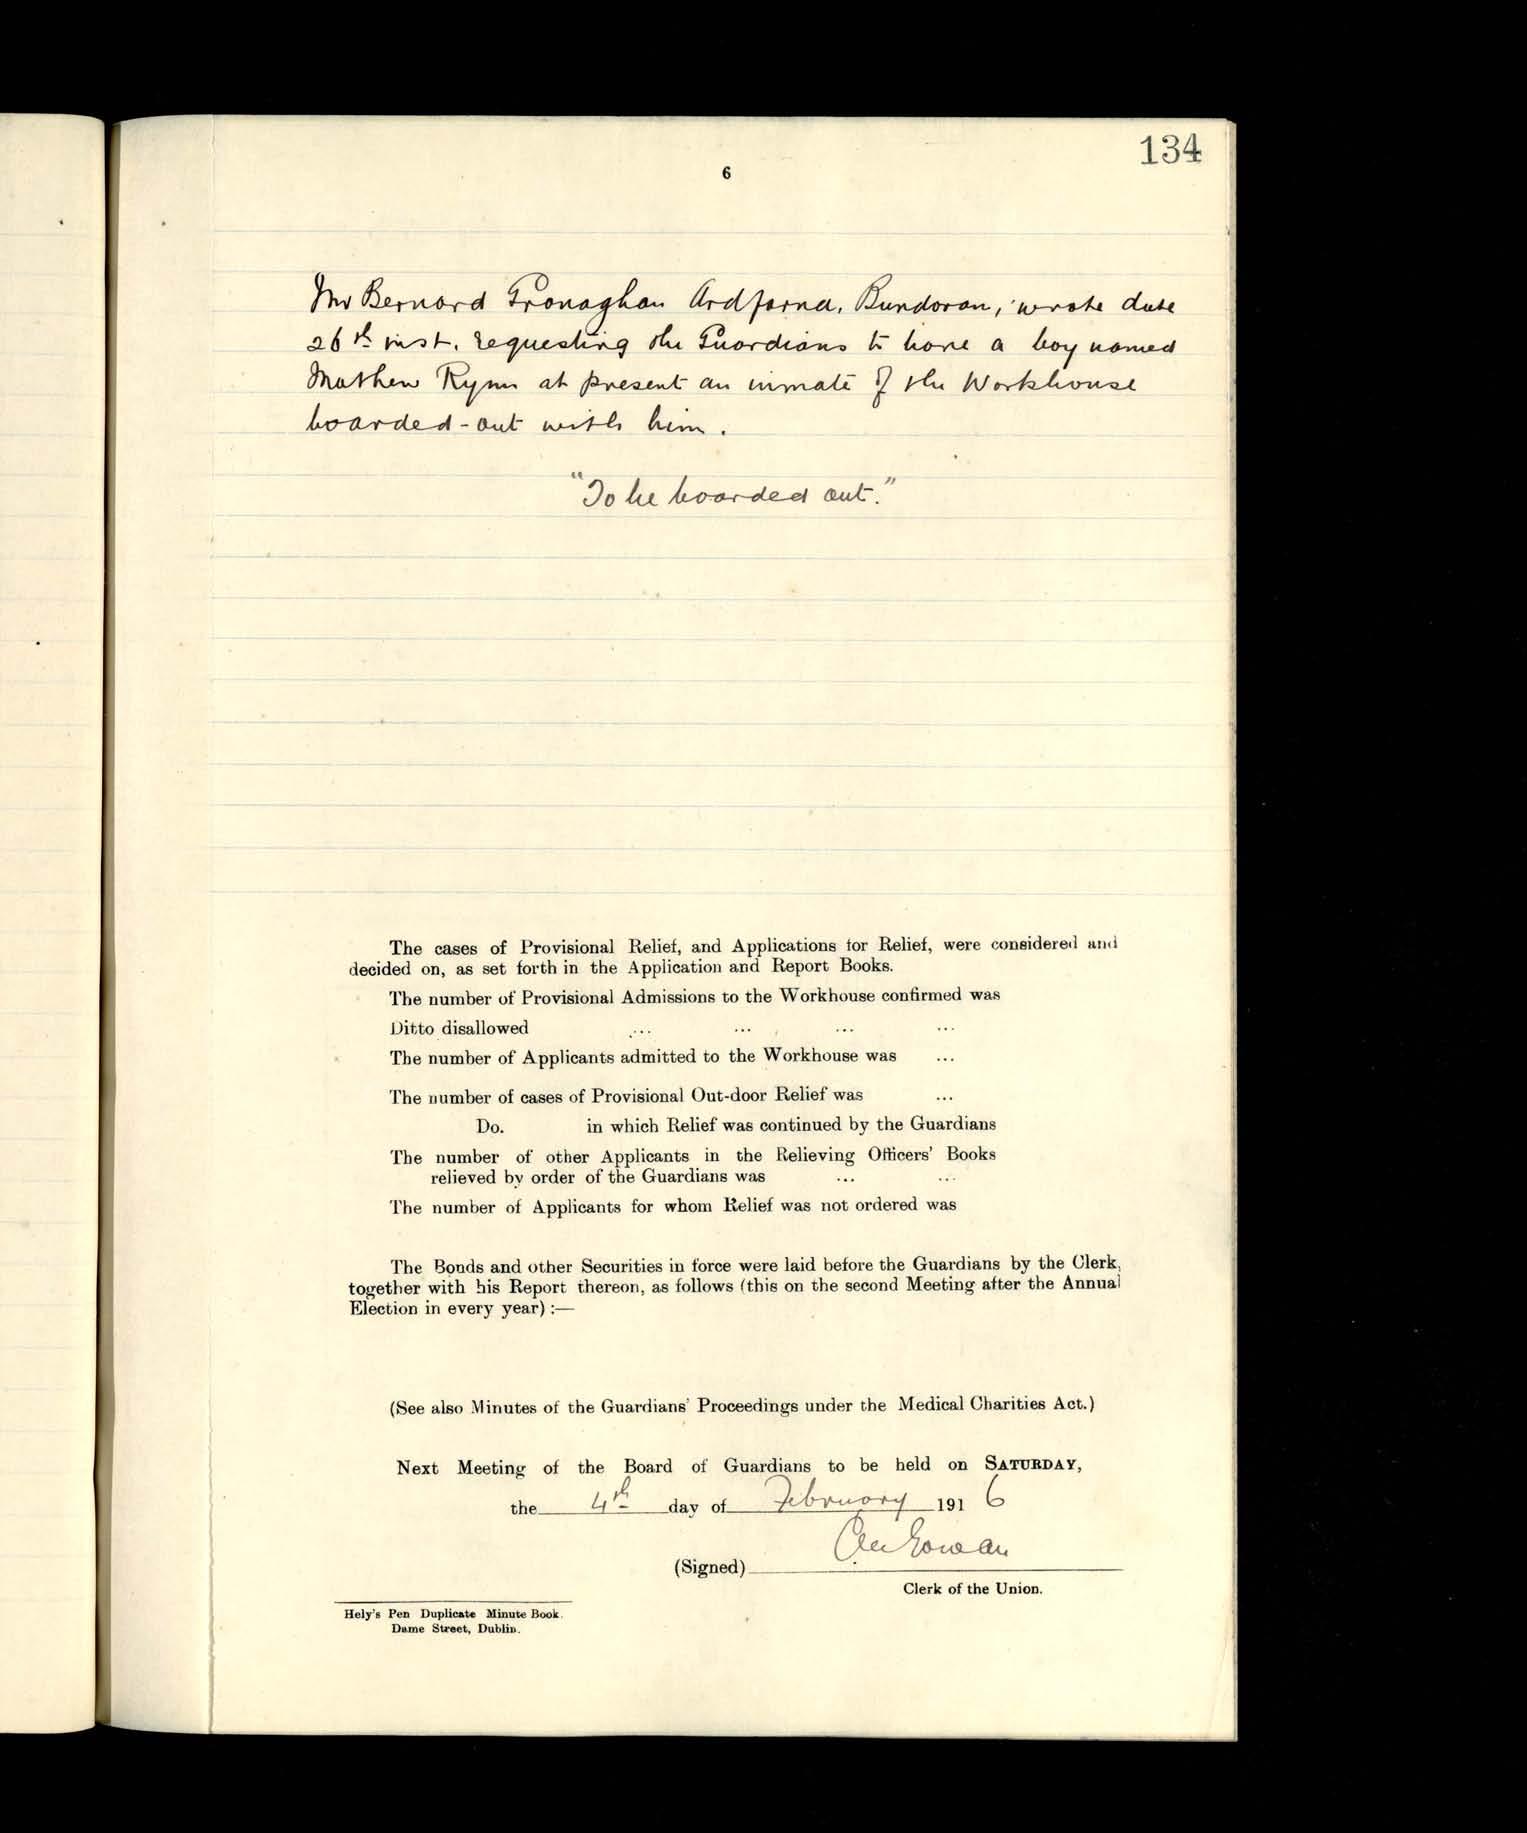 134
6
Mr Bernard Gronaghan Ardfarna, Bundoran, wrote date
26th inst. requesting the Guardians to have a boy named
Mathew Rynn at present an inmate of the Workhouse
boarded-out with him.
"To be boarded out."
The cases of Provisional Relief, and Applications for Relief, were considered and
decided on, as set forth in the Application and Report Books.
The number of Provisional Admissions to the Workhouse confirmed was
Ditto disallowed ... ... ... ...
The number of Applicants admitted to the Workhouse was ...
The number of cases of Provisional Out-door Relief was ...
Do. in which Relief was continued by the Guardians
The number of other Applicants in the Relieving Officers' Books
relieved by order of the Guardians was ... ...
The number of Applicants for whom Relief was not ordered was
The Bonds and other Securities in force were laid before the Guardians by the Clerk,
together with his Report thereon, as follows (this on the second Meeting after the Annual
Election in every year) :—
(See also Minutes of the Guardians' Proceedings under the Medical Charities Act.)
Next Meeting of the Board of Guardians to be held on SATURDAY,
the 4th day of February 1916
(Signed)
Clerk of the Union.
Hely's Pen Duplicate Minute Book.
Dame Street, Dublin.